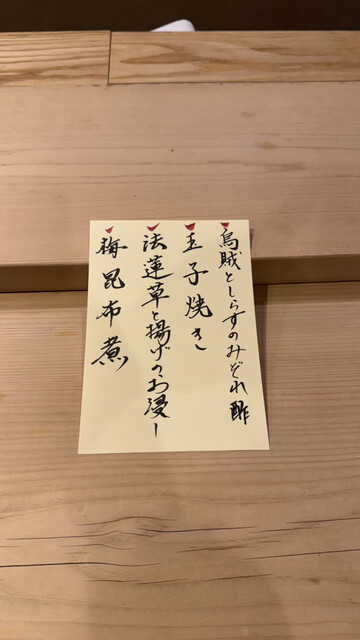 烏賊としらすのみぞれ酢
玉子焼き
法蓮草と揚げのお浸し
梅昆布煮